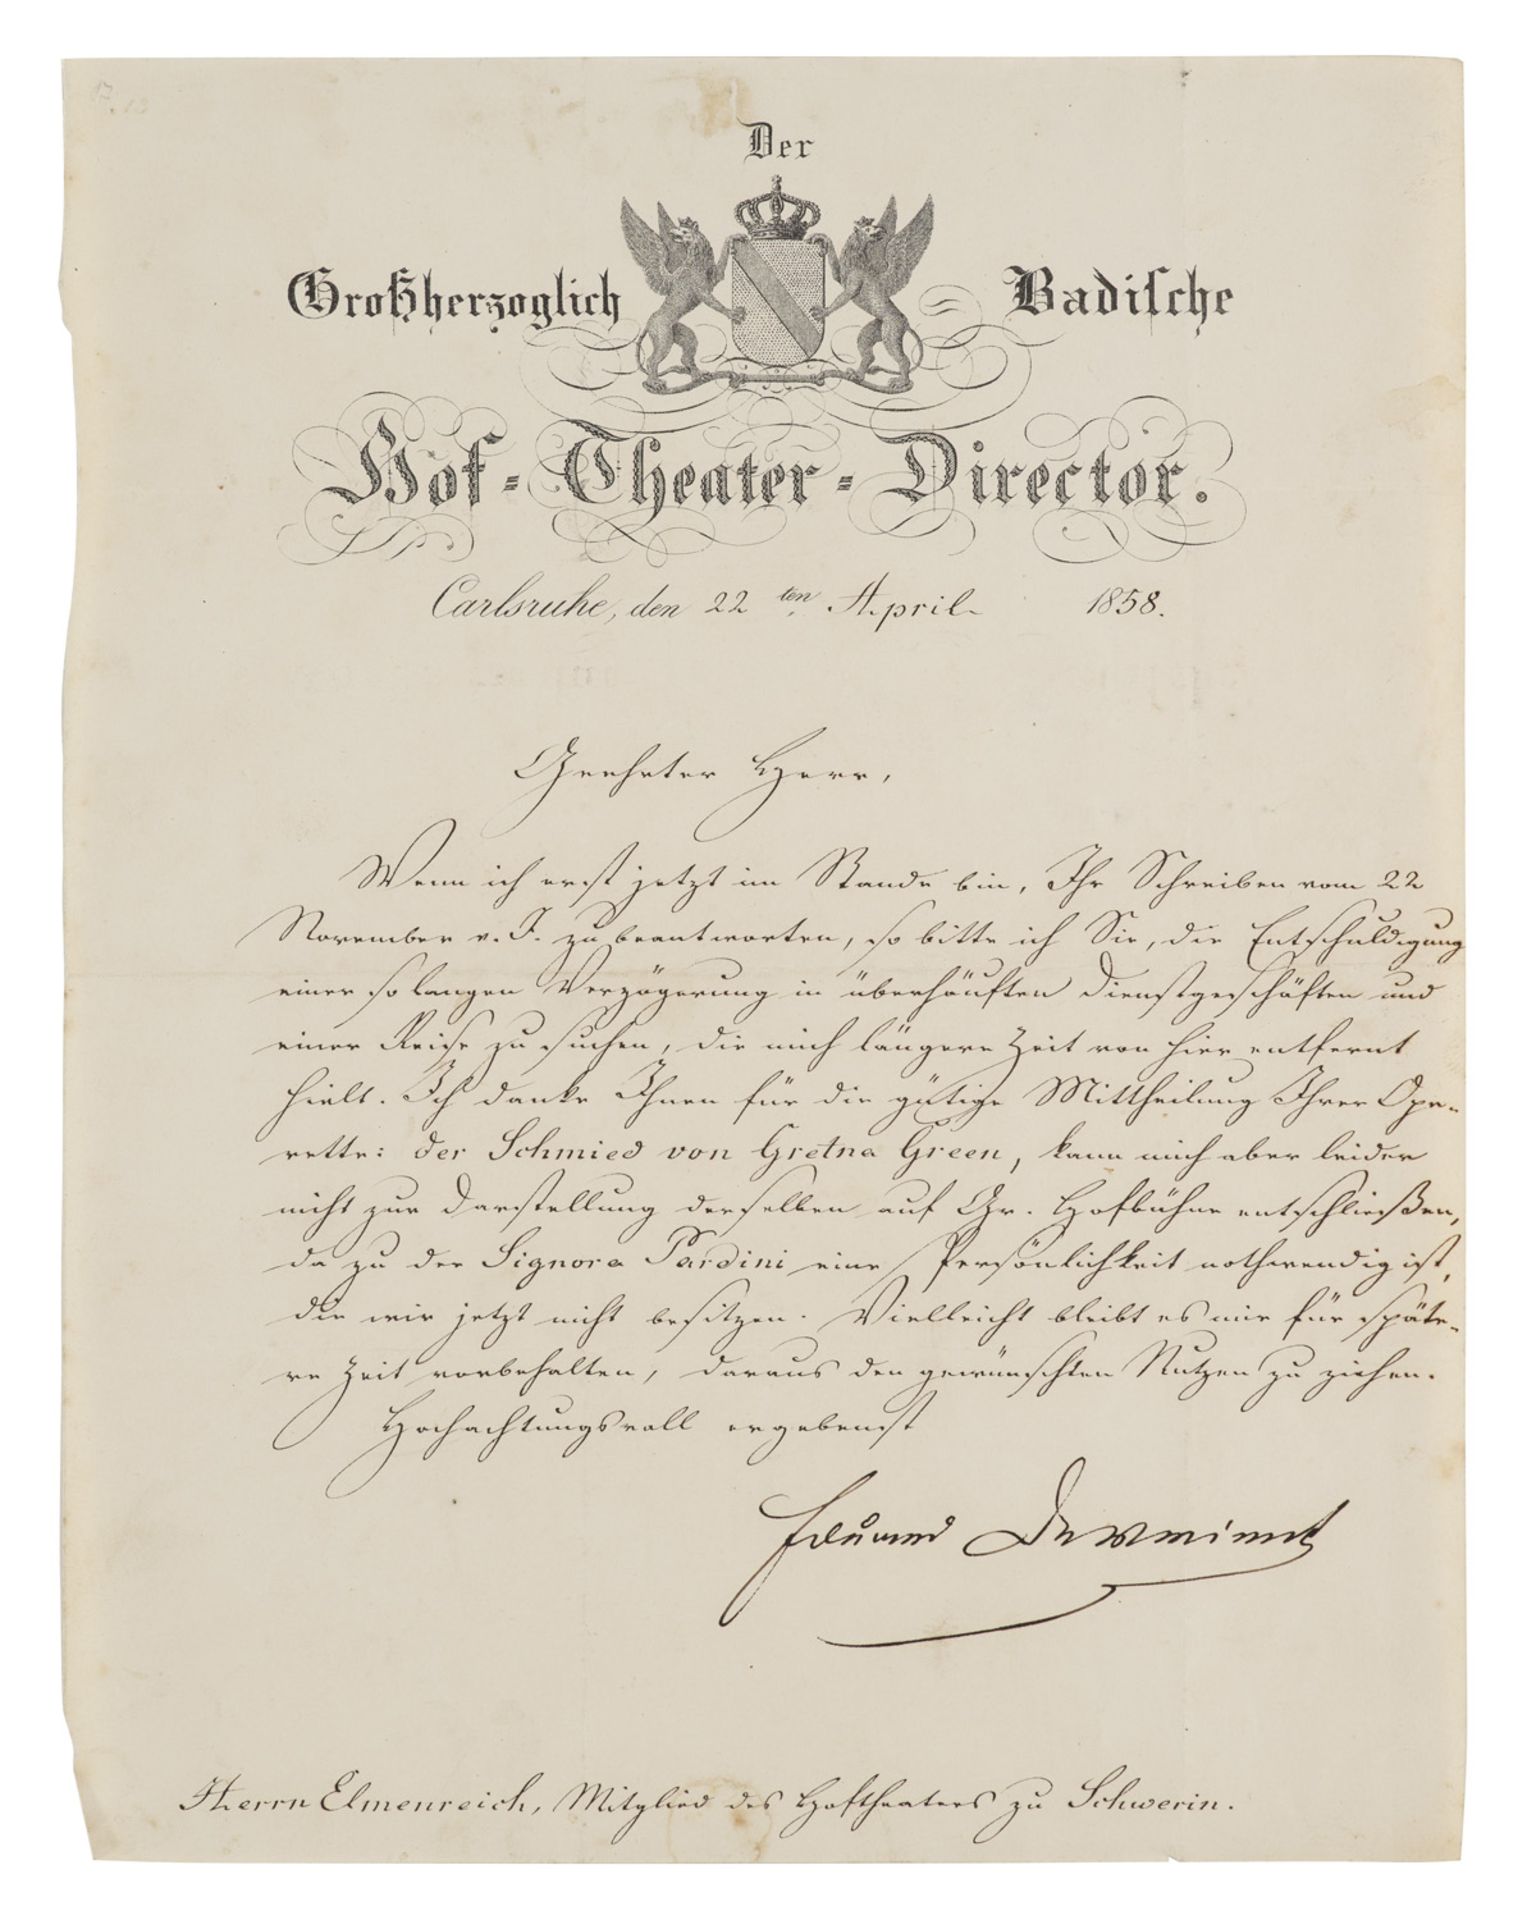 Der
Großherzoglich Badische
Hof-Theater-Director.
Carlsruhe, den 22 ten April 1858.
Geehrter Herr,
Wenn ich erst jetzt im Stande bin, Ihr Schreiben vom 22
November v. J. zu beantworten, so bitte ich Sie, die Entschuldigung
einer so langen Verzögerung in überhäuften Dienstgeschäften und
einer Reise zu suchen, die mich längere Zeit von hier entfernt
hielt. Ich danke Ihnen für die gütige Mittheilung Ihrer Ope-
rette: der Schmied von Gretna Green, kann mich aber leider
nicht zur Darstellung derselben auf Gr. Hofbühne entschließen,
da zu der Signora Pardini eine Persönlichkeit nothwendig ist,
die wir jetzt nicht besitzen. Vielleicht bleibt es mir für späte-
re Zeit vorbehalten, daraus den gewünschten Nutzen zu ziehen.
Hochachtungsvoll ergebenst
Eduard Devrient
Herrn Elmenreich, Mitglied des Hoftheaters zu Schwerin.